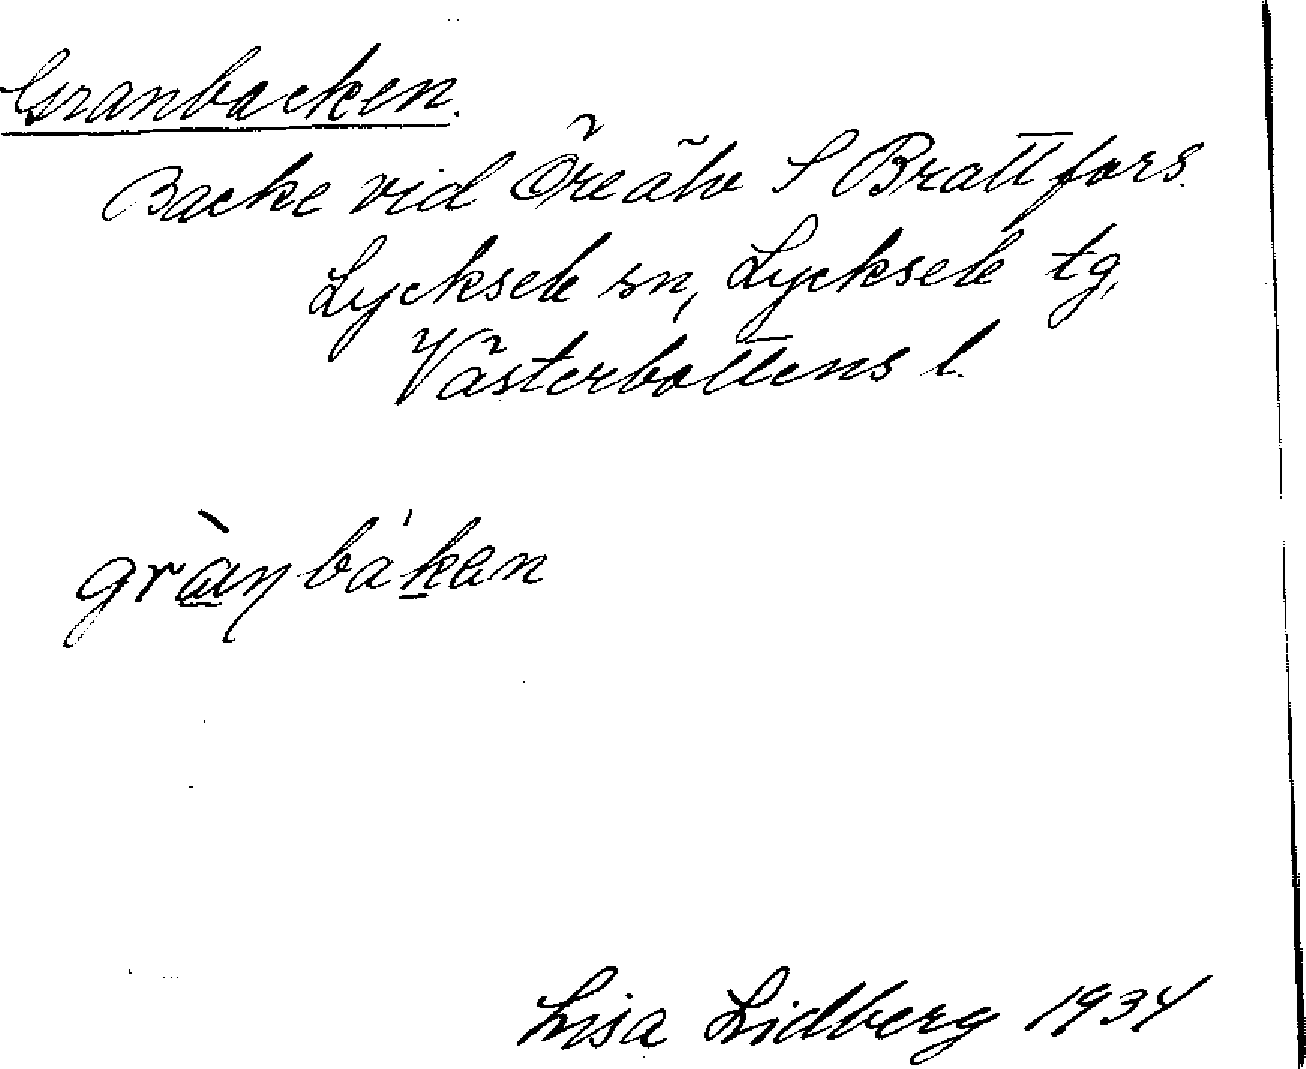 Granbacken.
Backe vid Öreälv S Brattfors.
Lycksele sn, Lycksele tg,
Västerbottens l.
grànbákan
Lisa Lidberg 1934